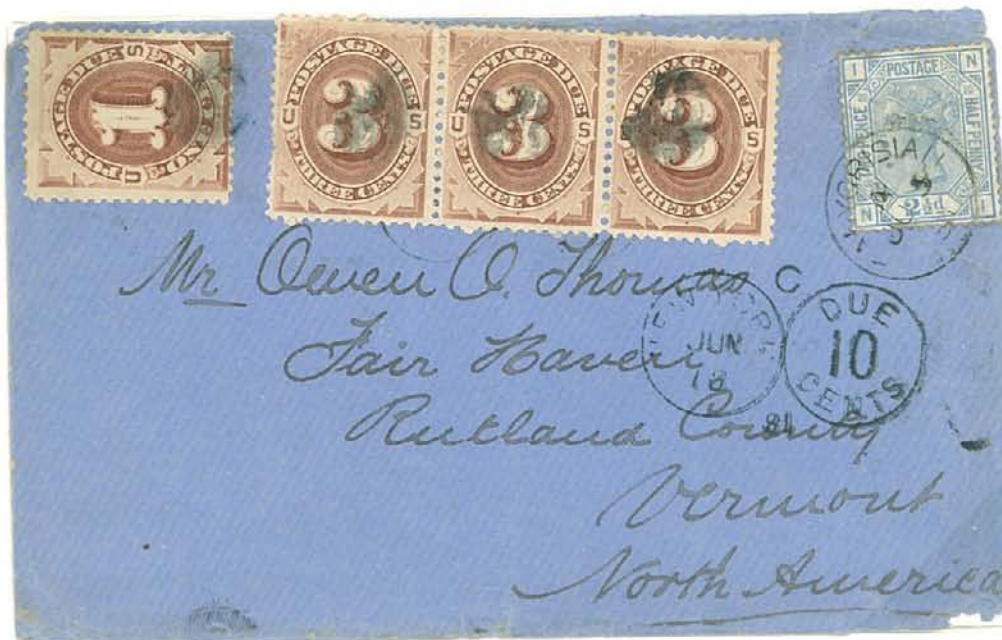 POSTAGE DUE
1
ONE CENT
U S
POSTAGE DUE
3
U S
THREE CENTS
POSTAGE DUE
3
U S
THREE CENTS
POSTAGE DUE
3
U S
THREE CENTS
POSTAGE
HALF PENNY
PENCE
2½d
I N
N I
Mr Owen O. Thomas
Fair Haven
Rutland County
Vermont
North America
C
NEW YORK
JUN
18
81
DUE
10
CENTS